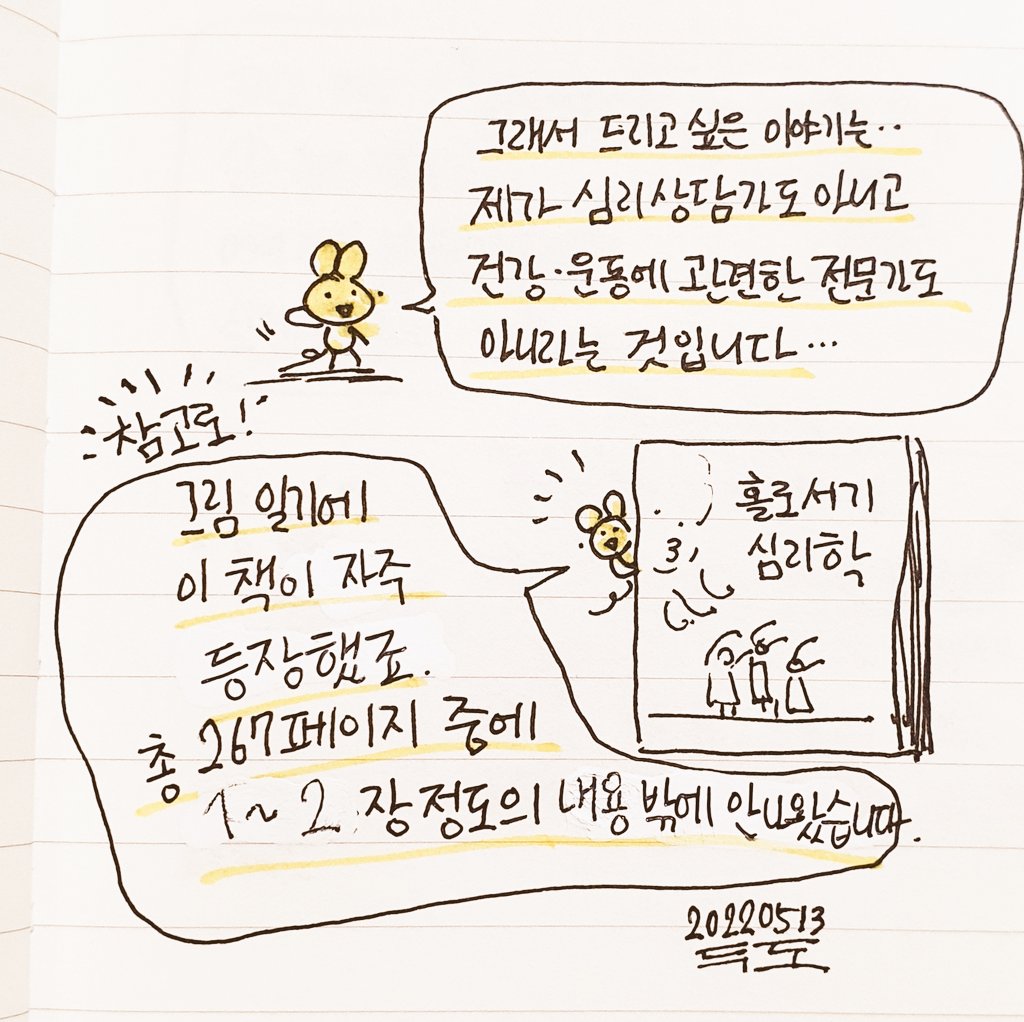 그래서 드리고 싶은 이야기는..
제가 심리상담가도 아니고
건강·운동에 관련한 전문가도
아니라는 것입니다...
참고로!
그림 일기에
이 책이 자주
등장했죠.
총 267페이지 중에
1~2 장정도의 내용 밖에 안나왔습니다.
홀로서기
심리학
20220513